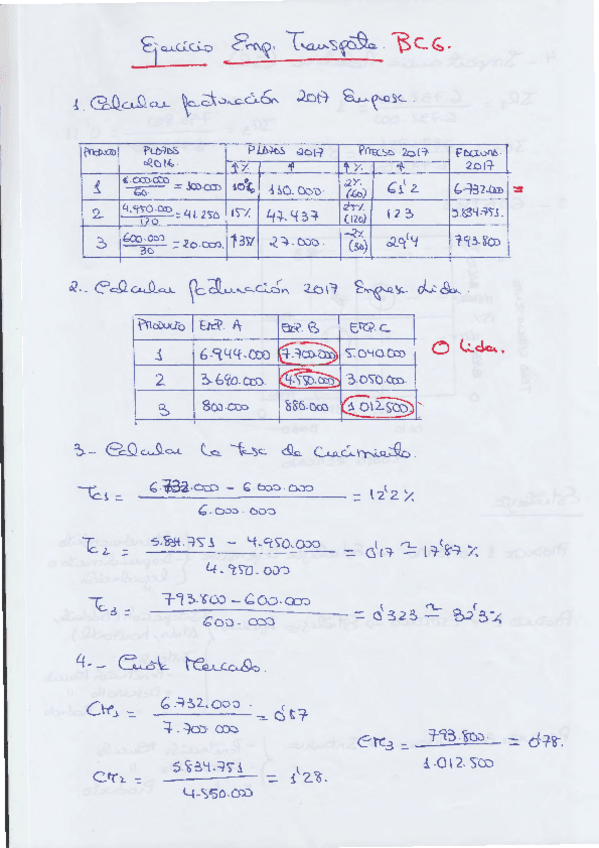 Ejercicio Emp. Transporte. BCG.
1. Calcular facturación 2017 Empresa.
PRODUCTO | PLAZAS 2016 | PLAZAS 2017 | PRECIO 2017 | FACTURA. 2017
↑% | ↑ | ↑% | ↑
1 | 6.000.000 / 60 = 100.000 | 10% | 110.000. | 2% (60) | 61'2 | 6.732.000 =
2 | 4.950.000 / 120 = 41.250 | 15% | 47.437 | (120) | 123 | 5.834.751.
3 | 600.000 / 30 = 20.000. | ↑35% | 27.000. | -2% (30) | 29'4 | 793.800
2.- Calcular facturación 2017 Empresa Lider.
PRODUCTO | EMP. A | EMP. B | EMP. C
1 | 6.944.000 | 7.700.000 | 5.040.000
O Lider.
2 | 3.690.000 | 4.550.000 | 3.050.000
3 | 800.000 | 880.000 | 1.012.500
3.- Calcular la Tasa de Crecimiento.
TC1 = 6.732.000 - 6.000.000 / 6.000.000 = 12'2%
TC2 = 5.834.751 - 4.950.000 / 4.950.000 = 0'17 ≃ 17'87%
TC3 = 793.800 - 600.000 / 600.000 = 0'323 ≃ 32'3%
4.- Cuota Mercado.
CM1 = 6.732.000 / 7.700.000 = 0'87
CM3 = 793.800 / 1.012.500 = 0'78.
CM2 = 5.834.751 / 4.550.000 = 1'28.